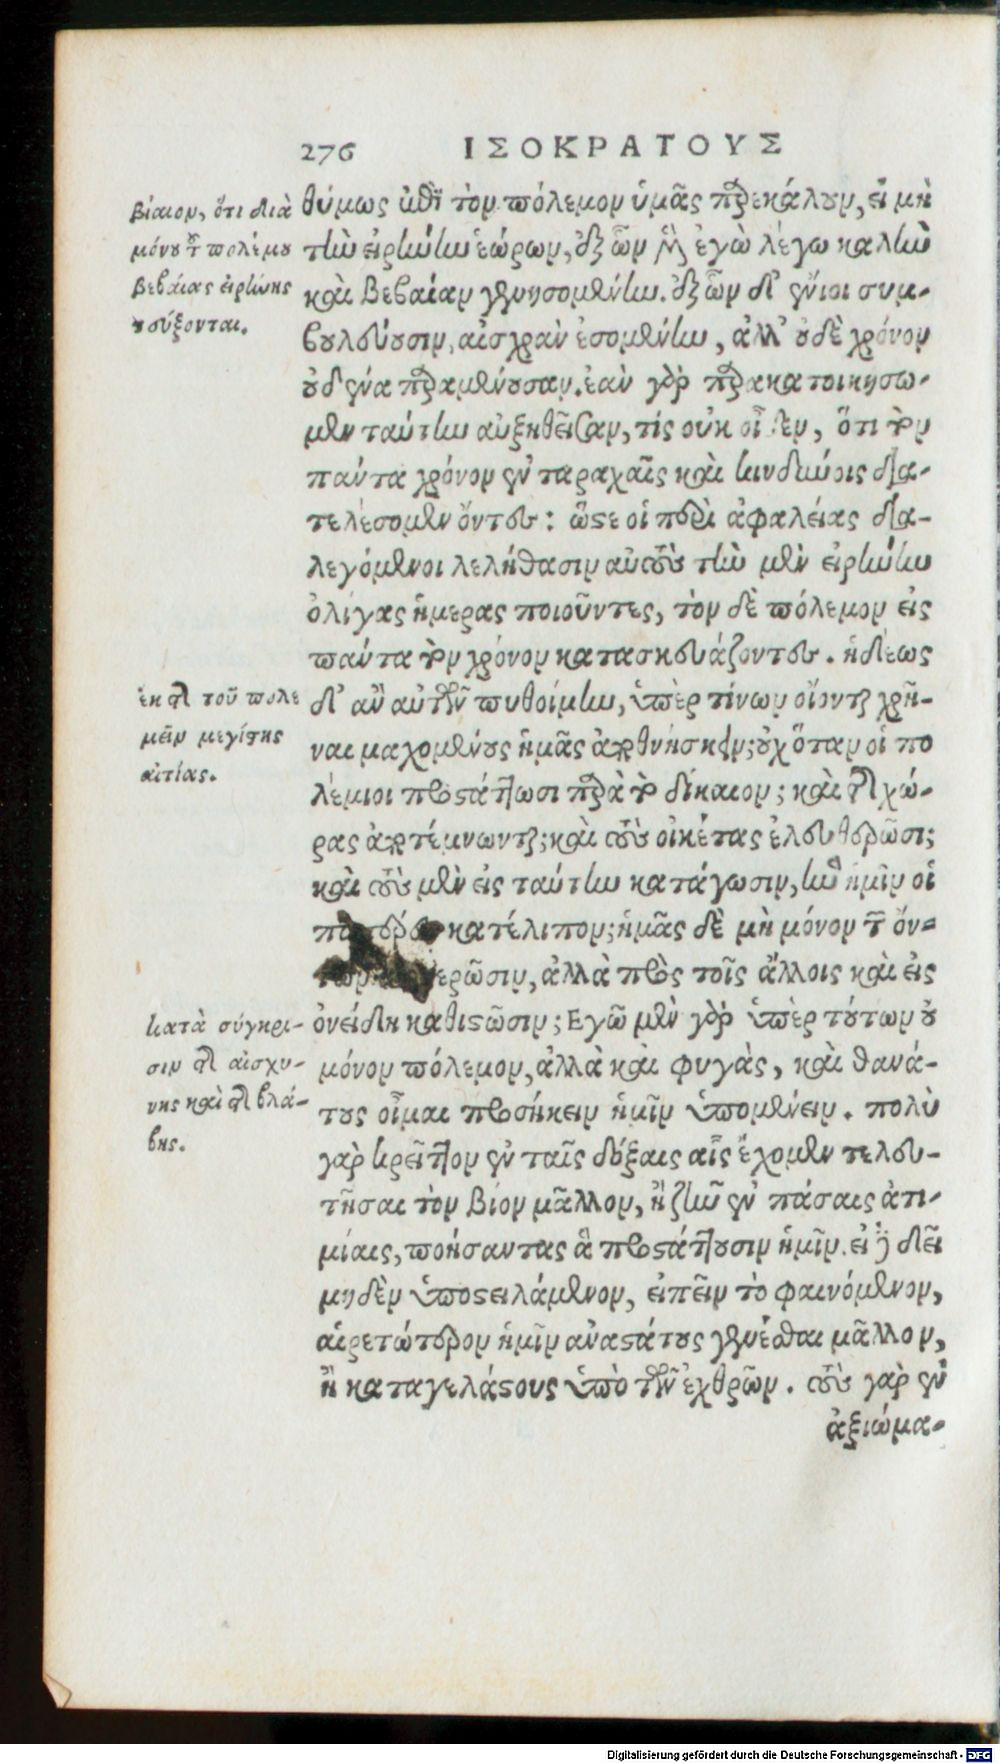 276 ΙΣΟΚΡΑΤΟΥΣ
θύμως ἐπὶ τὸν πόλεμον ὑμᾶς παρεκάλουν, εἰ μὴ
τὴν εἰρήνην ἑώρων, ἐξ ὧν μὲν ἐγὼ λέγω καλὴν
καὶ βεβαίαν γενησομένην. ἐξ ὧν δ' ἔνιοι συμ-
βουλεύουσιν, αἰσχρὰν ἐσομένην, ἀλλ' οὐδὲ χρόνον
οὐδένα παραμένουσαν. ἐὰν γὰρ παρακατοικησώ-
μεν ταύτην αὐξηθεῖσαν, τίς οὐκ οἶδεν, ὅτι τὸν
πάντα χρόνον ἐν ταραχαῖς καὶ κινδύνοις δια-
τελέσομεν ὄντες: ὥστε οἱ περὶ ἀσφαλείας δια-
λεγόμενοι λελήθασιν αὑτοὺς τὴν μὲν εἰρήνην
ὀλίγας ἡμερας ποιοῦντες, τὸν δὲ πόλεμον εἰς
πάντα τὸν χρόνον κατασκευάζοντες. ἡδέως
δ' ἂν αὐτῶν πυθοίμην, ὑπὲρ τίνων οἴονται χρῆ-
ναι μαχομένους ἡμᾶς ἀποθνήσκειν; οὐχ ὅταν οἱ πο
λέμιοι προστάττωσι παρὰ τὸ δίκαιον; καὶ τῆς χώ-
ρας ἀποτέμνωνται; καὶ τοὺς οἰκέτας ἐλευθερῶσι;
καὶ τοὺς μὲν εἰς ταύτην κατάγωσιν, ἣν ἡμῖν οἱ
κατέλιπον; ἡμᾶς δὲ μὴ μόνον τῶν ὄν-
ἀλλὰ πρὸς τοῖς ἄλλοις καὶ εἰς
ὀνείδη καθιστῶσιν; Εγὼ μὲν γὰρ ὑπὲρ τούτων οὐ
μόνον πόλεμον, ἀλλὰ καὶ φυγὰς, καὶ θανά-
τους οἶμαι προσήκειν ἡμῖν ὑπομένειν. πολὺ
γὰρ κρεῖττον ἐν ταῖς δόξαις αἷς ἔχομεν τελευ-
τῆσαι τὸν βίον μᾶλλον, ἢ ζῆν ἐν πάσαις ἀτι-
μίαις, ποήσαντας ἃ προστάττουσιν ἡμῖν. εἰ δὲ δεῖ
μηδὲν ὑποστειλάμενον, εἰπεῖν τὸ φαινόμενον,
αἱρετώτερον ἡμῖν ἀναστάτους γενέσθαι μᾶλλον,
ἢ καταγελάστους ὑπὸ τῶν ἐχθρῶν. τοὺς γὰρ ἐν
ἀξιώμα-
βίαιον, ὅτι διὰ
μόνου τοῦ πολέμου
βεβαίας εἰρήνης
τεύξονται.
ἐκ τῆς τοῦ πολε
μεῖν μεγίστης
αἰτίας.
κατὰ σύγκρι-
σιν τῆς αἰσχύ-
νης καὶ τῆς βλά-
βης.
Digitalisierung gefördert durch die Deutsche Forschungsgemeinschaft - DFG